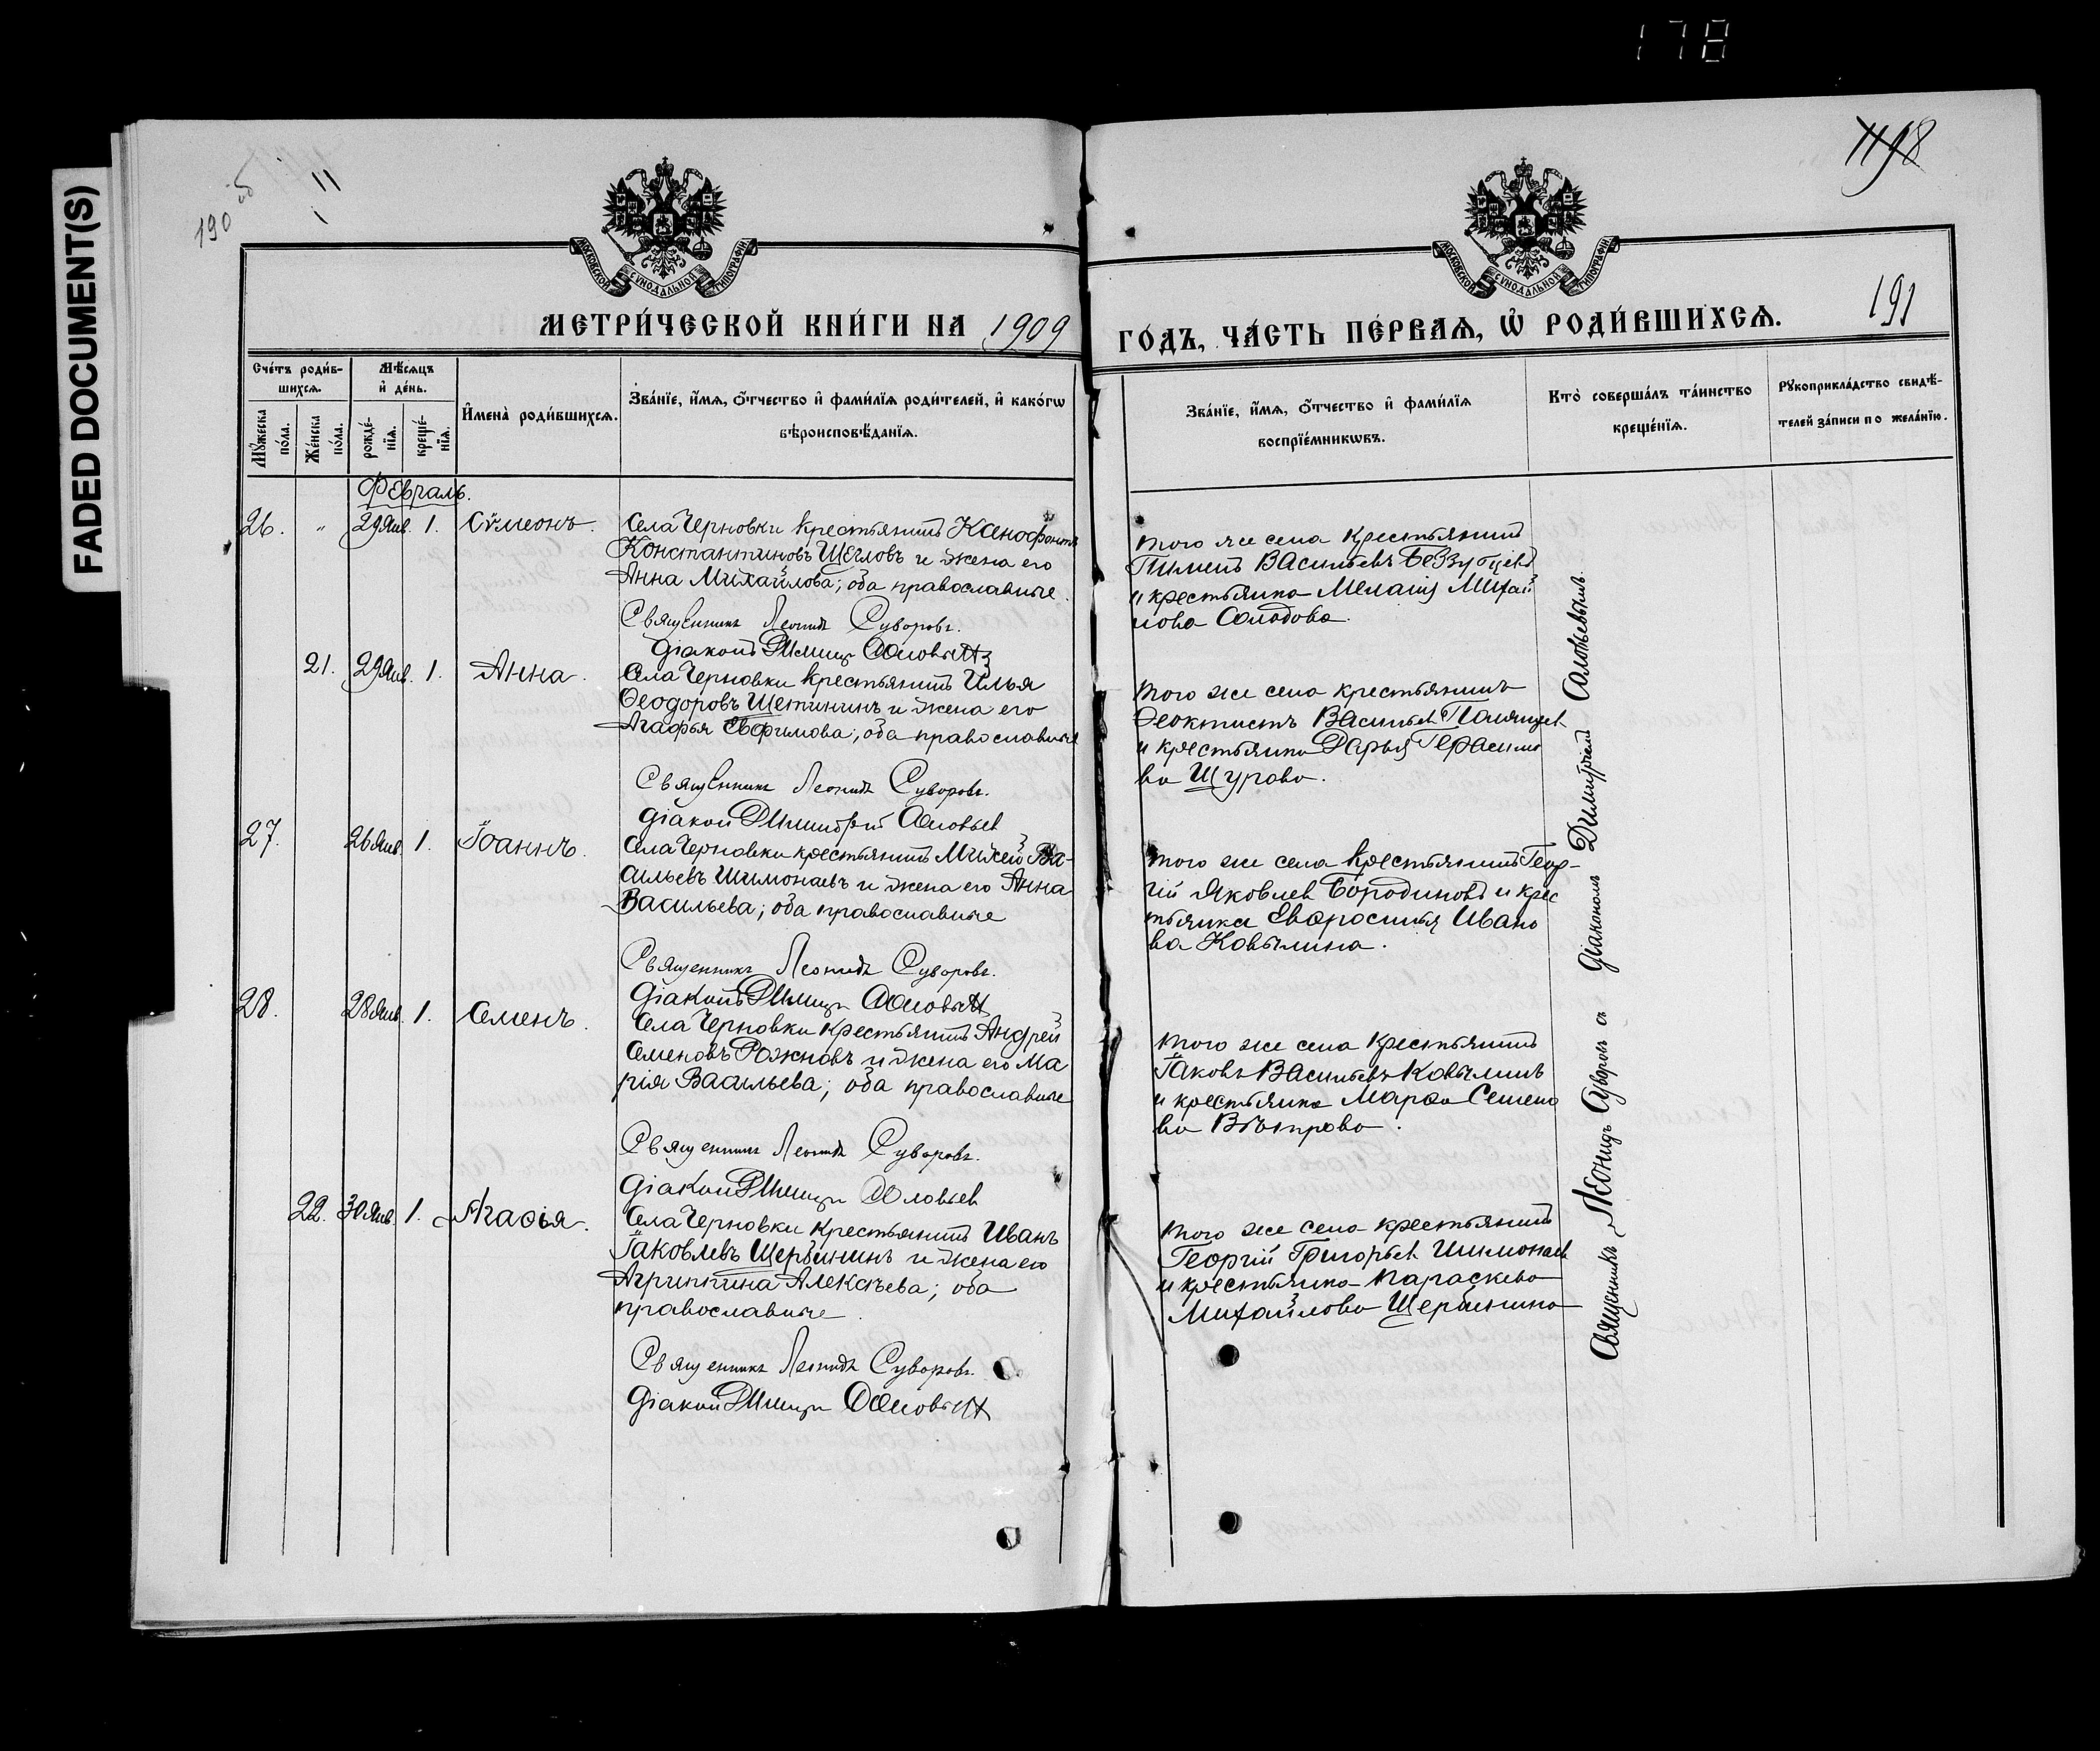 178
FADED DOCUMENT(S)
190 об
11
1198
191
МОСКОВСКОЙ СѴНОДАЛЬНОЙ ТИПОГРАФІИ
МОСКОВСКОЙ СѴНОДАЛЬНОЙ ТИПОГРАФІИ
МЕТРИ́ЧЕСКОЙ КНИ́ГИ НА 1909
ГО́ДЪ, ЧА́СТЬ ПЕ́РВАѦ, Ѡ҆ РОДИ́ВШИХСѦ.
Сче́тъ роди́в-
шихсѧ.
Мꙋ́жеска
по́ла.
Же́нска
по́ла.
Мѣ́сѧцъ
и҆ де́нь.
рожде́-
нїѧ.
креще́-
нїѧ.
И҆мена̀ роди́вшихсѧ.
Зва́нїе, и҆́мѧ, ѻ҆́тчество и҆ фами́лїѧ роди́телей, и҆ како́гѡ
вѣроисповѣ́данїѧ.
Зва́нїе, и҆́мѧ, ѻ҆́тчество и҆ фами́лїѧ
воспрїе́мникѡвъ.
Кто̀ соверша́лъ та́инство
креще́нїѧ.
Рꙋкоприкла́дство свидѣ́-
телей за́писи по жела́нїю.
Февраль.
26. „ 29 Янв. 1. Сѵмеонъ.
Села Черновки крестьянинъ Ксенофонтъ
Константиновъ Щегловъ и жена его
Анна Михайлова; оба православные.
Священникъ Леонидъ Суворовъ.
Діаконъ Димитрій Соловьевъ
того же села крестьянинъ
Пименъ Васильевъ Беззубцевъ
и крестьянка Меланія Михай
лова Солодова.
21. 29 Янв. 1. Анна.
Села Черновки крестьянинъ Илья
Ѳеодоровъ Щетининъ и жена его
Агафья Евфимова; оба православные
Священникъ Леонидъ Суворовъ.
Діаконъ Димитрій Соловьев
того же села крестьянинъ
Ѳеоктистъ Васильев
и крестьянка Дарья Герасимо
ва Щурова.
27. 26 Янв. 1. Іоаннъ.
Села Черновки крестьянинъ Ва-
сильевъ Шимонаевъ и жена его Анна
Васильева; оба православные
Священникъ Леонидъ Суворовъ.
Діаконъ Димитрій Соловьевъ
того же села крестьянинъ Геор-
гій Яковлев Бородиновъ и крес
тьянка Евфросинья Ивано
ва Ковылина.
28. 28 Янв. 1. Семенъ.
Села Черновки крестьянинъ Андрей
Семеновъ Рожновъ и жена его Ма
рія Васильева; оба православные
Священникъ Леонидъ Суворовъ.
Діаконъ Димитрій Соловьев
того же села крестьянинъ
Іаковъ Васильевъ Ковылинъ
и крестьянка Марѳа Семено
ва Вѣтрова.
22. 30 Янв. 1. Агаѳія.
Села Черновки крестьянинъ Иванъ
Іаковлевъ Щербининъ и жена его
Агриппина Алексѣева; оба
православные.
Священникъ Леонидъ Суворовъ.
Діаконъ Димитрій Соловьевъ
того же села крестьянинъ
Георгій Григорьев Шимонаев
и крестьянка Параскева
Михайлова Щербинина
Священникъ Леонидъ Суворовъ съ діакономъ Димитріемъ Соловьевымъ.